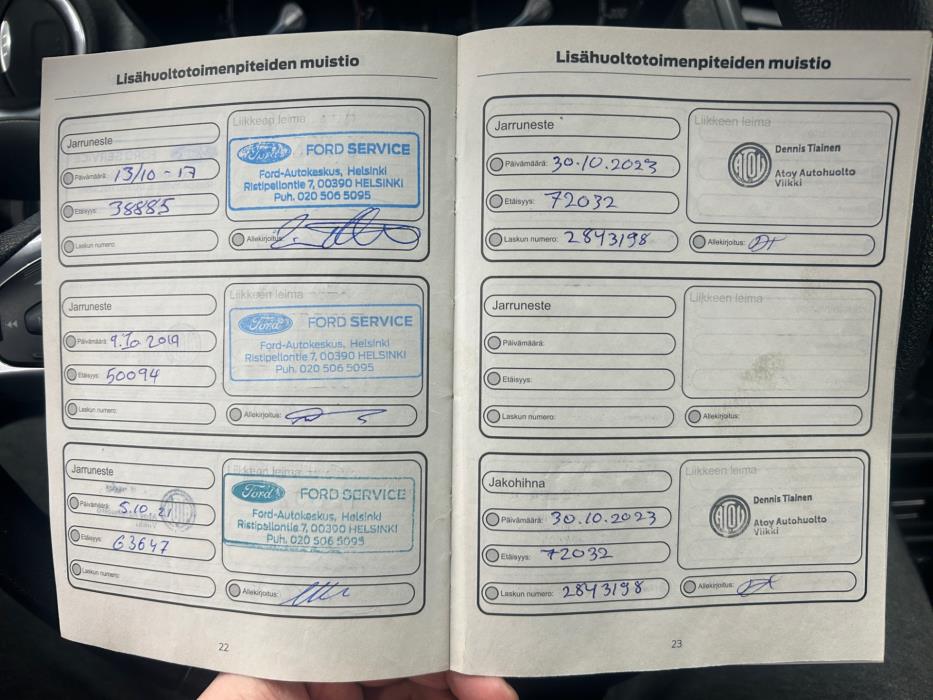 Lisähuoltotoimenpiteiden muistio
Jarruneste
Päivämäärä: 13/10 - 17
Etäisyys: 38885
Laskun numero:
Liikkeen leima
Ford FORD SERVICE
Ford-Autokeskus, Helsinki
Ristipellontie 7, 00390 HELSINKI
Puh. 020 506 5095
Allekirjoitus:
Jarruneste
Päivämäärä: 9.10 2019
Etäisyys: 50094
Laskun numero:
Liikkeen leima
Ford FORD SERVICE
Ford-Autokeskus, Helsinki
Ristipellontie 7, 00390 HELSINKI
Puh. 020 506 5095
Allekirjoitus:
Jarruneste
Päivämäärä: 5.10.21
Etäisyys: 63647
Laskun numero:
Liikkeen leima
Ford FORD SERVICE
Ford-Autokeskus, Helsinki
Ristipellontie 7, 00390 HELSINKI
Puh. 020 506 5095
Allekirjoitus:
22
Lisähuoltotoimenpiteiden muistio
Jarruneste
Päivämäärä: 30.10.2023
Etäisyys: 72032
Laskun numero: 2843198
Liikkeen leima
Dennis Tiainen
Atoy Autohuolto
Viikki
Allekirjoitus: DT
Jarruneste
Päivämäärä:
Etäisyys:
Laskun numero:
Liikkeen leima
Allekirjoitus:
Jakohihna
Päivämäärä: 30.10.2023
Etäisyys: 72032
Laskun numero: 2843198
Liikkeen leima
Dennis Tiainen
Atoy Autohuolto
Viikki
Allekirjoitus: DT
23